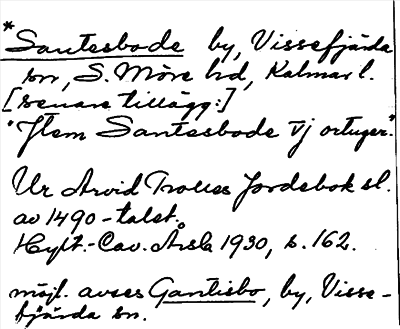 *Santesbode by, Vissefjärda
sn, S. Möre hd, Kalmar l.
[senare tillägg:]
"Jtem Santesbode vj ortuger."
Ur Arvid Trolles Jordebok sl.
av 1490-talet.
Hylt.-Cav. Årsb 1930, s. 162.
möjl. avses Gantisbo, by, Visse-
fjärda sn.